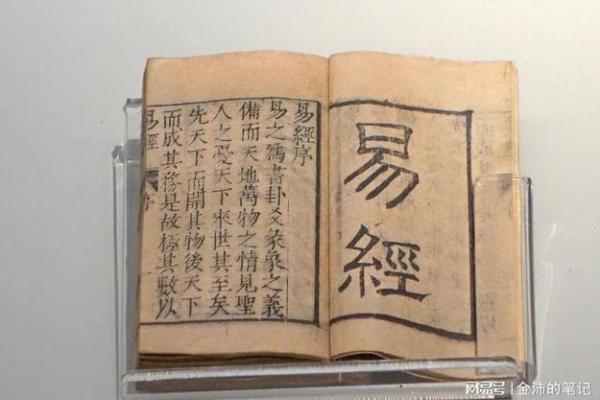 易經
易經序
易之爲書卦爻彖象之義
備而天地萬物之情見聖
人之憂天下來世其至矣
先天下而開其物後天下
而成其務是故極其數以
易經
序
搜狐号@金沛的笔记